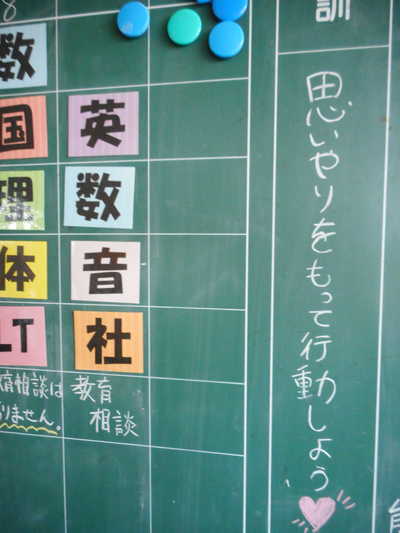 8
訓
思いやりをもって行動しよう
英
数
音
社
教育
相談
数
国
理
体
LT
相談は
りません。